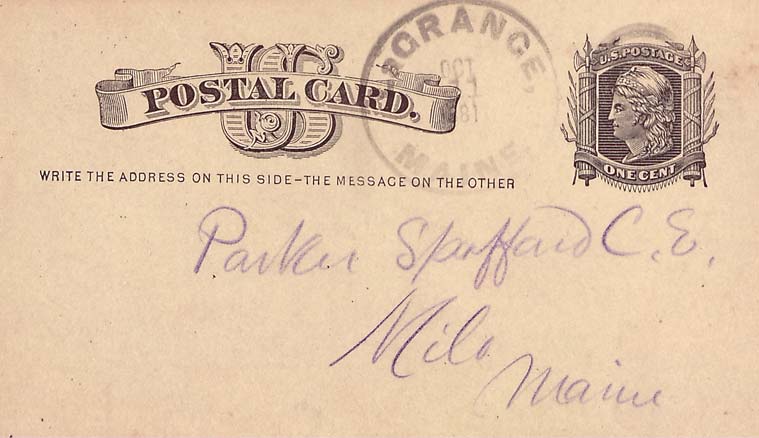 US
POSTAL CARD.
AGRANGE,
OCT
81
MAINE.
U.S. POSTAGE
ONE CENT
WRITE THE ADDRESS ON THIS SIDE–THE MESSAGE ON THE OTHER
Parker Spofford C.E.
Milo
Maine